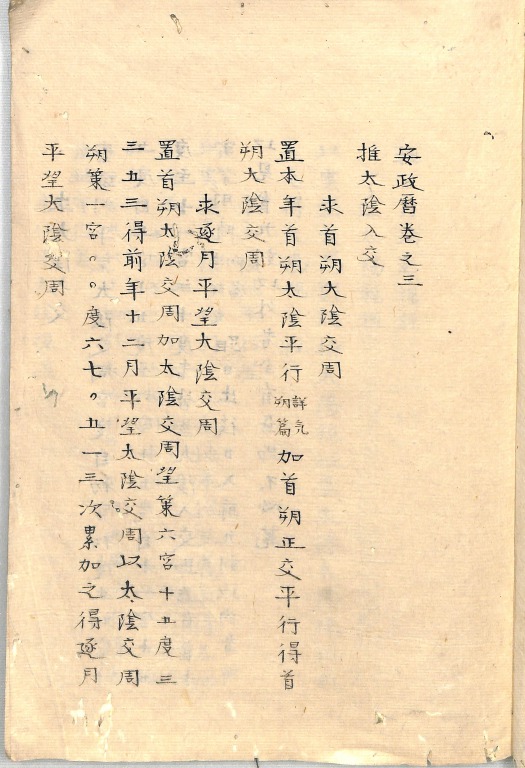 安政暦巻之三
推太陰入交
求首朔太陰交周
置本年首朔太陰平行詳元朔篇加首朔正交平行得首
朔太陰交周
求逐月平望太陰交周
置首朔太陰交周加太陰交周望策六宮十五度三
三五三得前年十二月平望太陰交周以太陰交周
朔策一宮〇〇度六七〇五一三次累加之得逐月
平望太陰交周